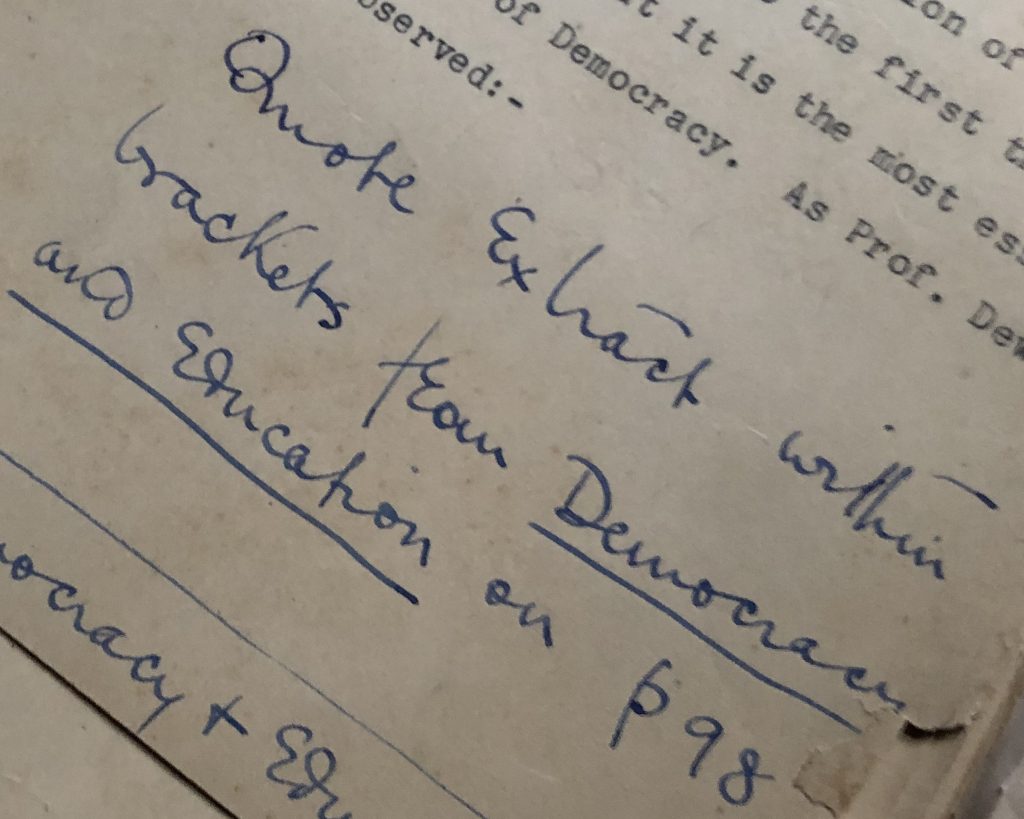 of
the first
it is the most
of Democracy. As Prof.
observed:-
Quote Extract within
brackets from Democracy
and Education on p 98
& Edu